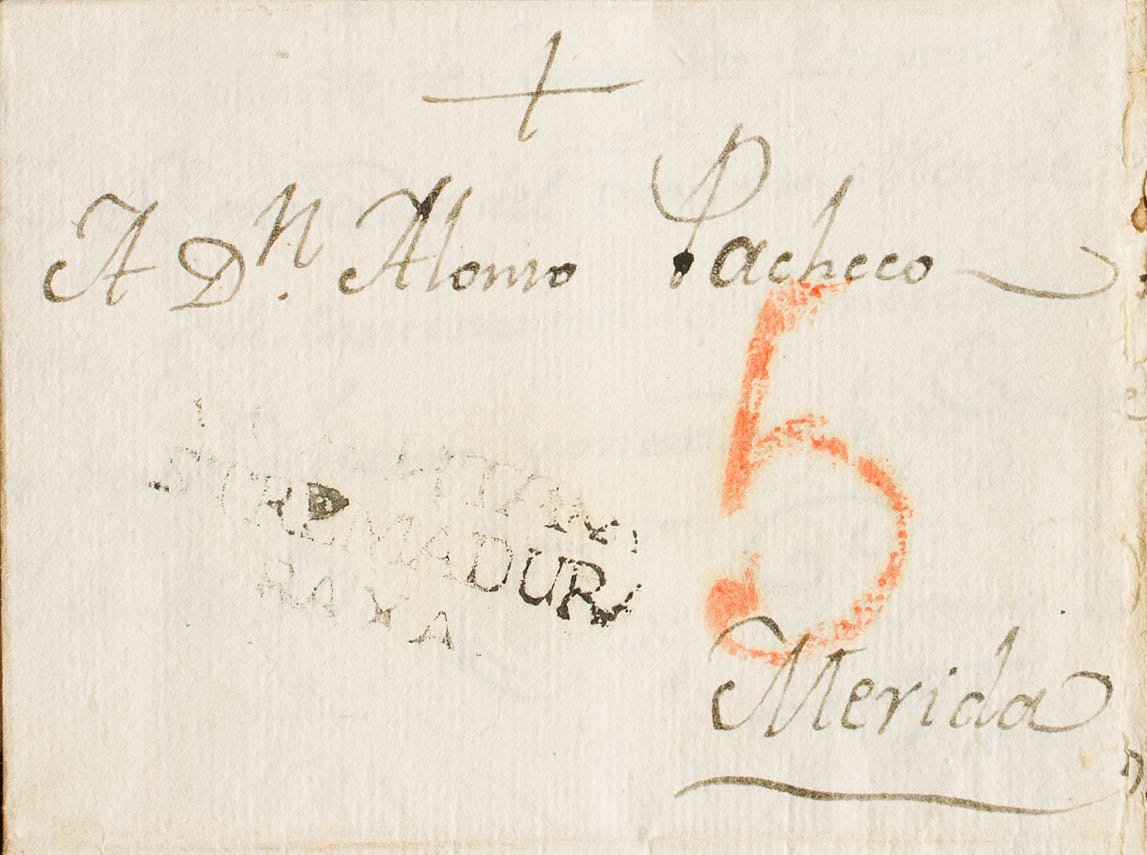 A Dn. Alonso Pacheco
5
STREMADURA
RAYA
Merida